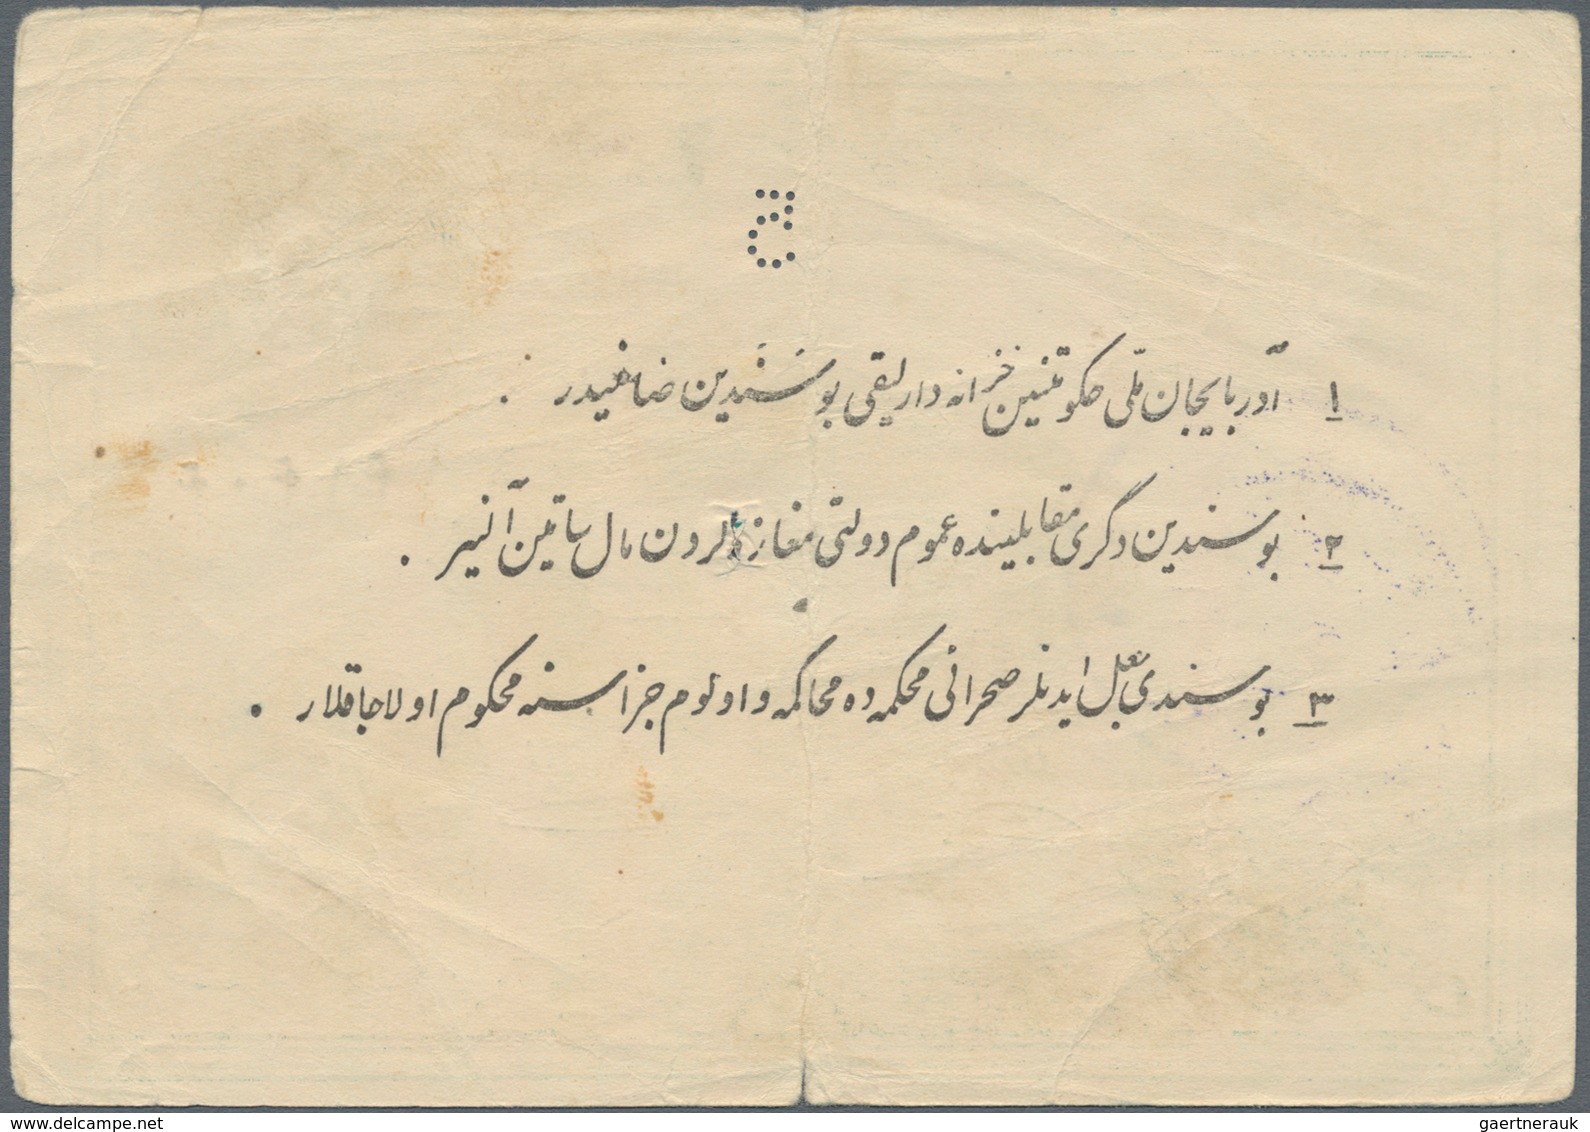 ۱ آذربایجان ملّی حکومتنین خزانه دارلیقی بو سَنَدین ضامنیدر .
۲ بو سندین دگری مقابلینده عموم دولتی مغازه لردن مال ساتین آلنیر .
۳ بو سندی جعل ایدنلر صحرائی محکمه ده محاکمه و اولوم جزاسنه محکوم اولاجاقلار .
gaertnerauk